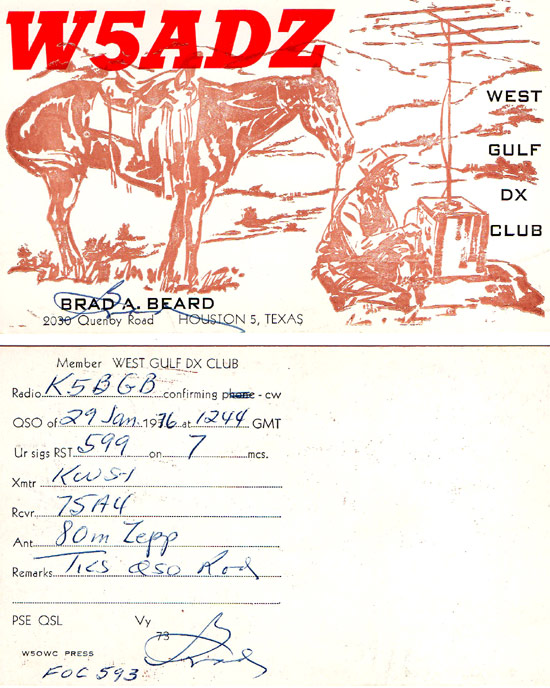 W5ADZ
WEST
GULF
DX
CLUB
BRAD A. BEARD
2030 Quenby Road HOUSTON 5, TEXAS
Member WEST GULF DX CLUB
Radio K5BGB confirming phone - cw
QSO of 29 Jan. 1976 at 1244 GMT
Ur sigs RST 599 on 7 mcs.
Xmtr KWS-1
Rcvr. 75A4
Ant. 80m Zepp
Remarks TKS QSO Rod
PSE QSL Vy
73
Brad
W5OWC PRESS
FOC 593